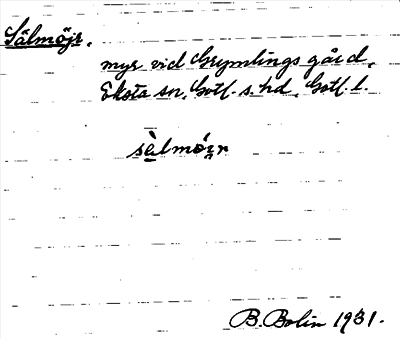 Sälmöjr.
myr vid Grymlings gård,
Eksta sn, Gotl. s. hd, Gotl. l.
sèlmöi̯r
B. Bolin 1931.